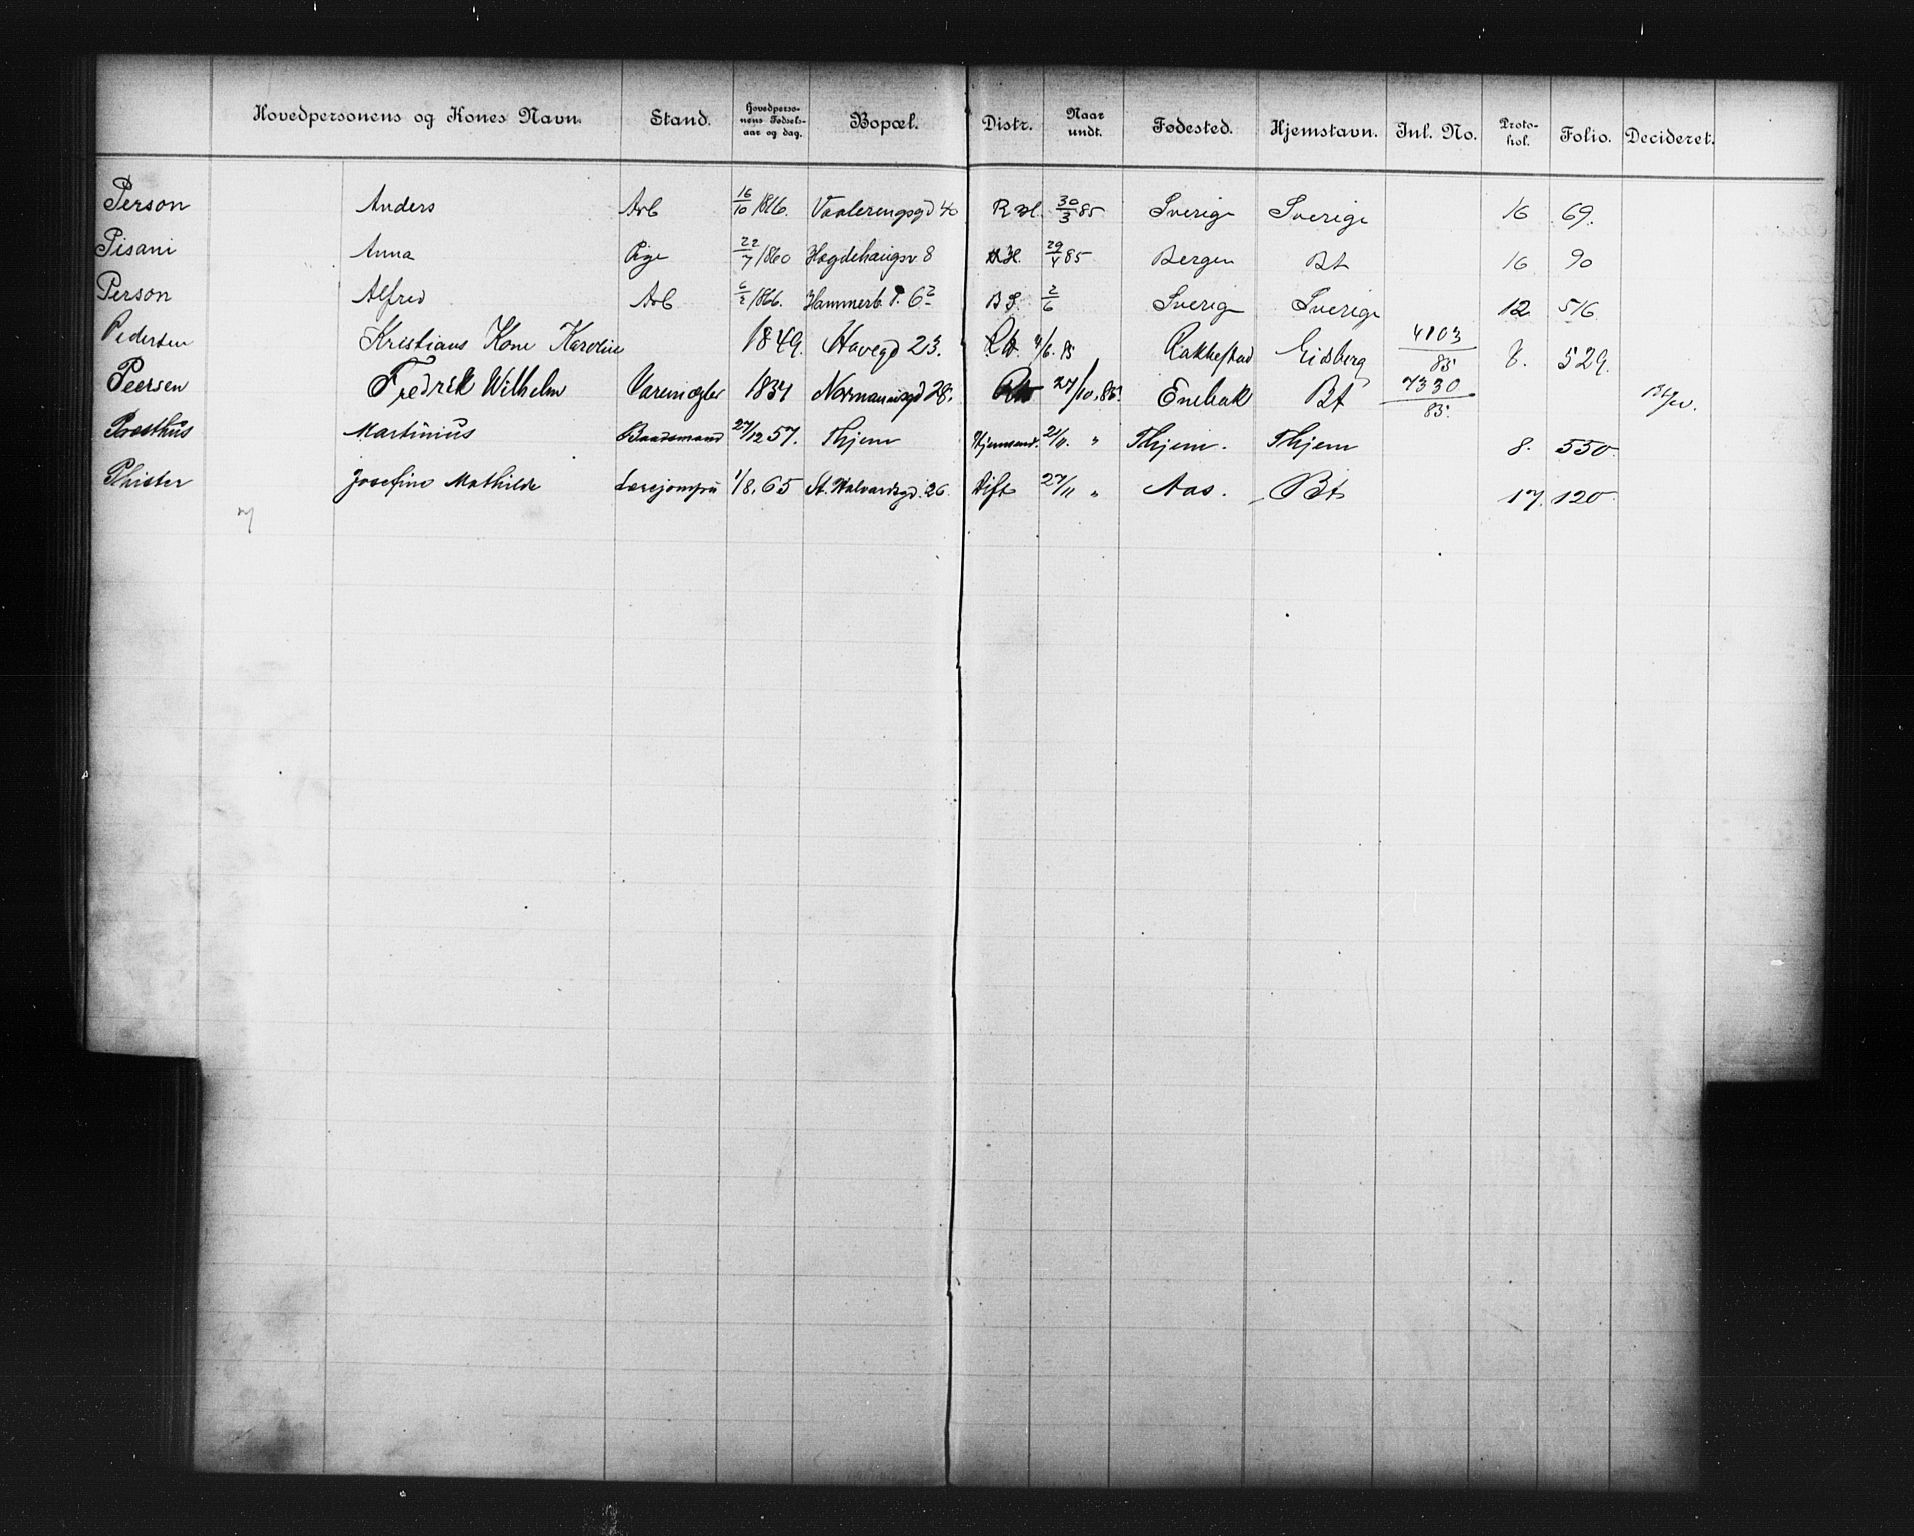 Hovedpersonens og Kones Navn. Stand. Hovedpersonens Fødselsaar og dag. Bopæl. Distr. Naar undt. Fødested. Hjemstavn. Inl. No. Protokol. Folio. Decideret.
Person Anders Arb 16/10 1866. Vaalerengsgd 40 R 30/3 85 Sverige Sverige 16 69.
Pisani Anna Pige 22/7 1860 Hægdehaugsv 8 H. 29/4 85 Bergen Bt 16 90
Person Alfred Arb 6/2 1866. Hammerb 6 2/6 Sverige Sverige 12 516
Pedersen Kristians Kone Karoline 1849. Havegd 23. 85 Rakkestad Eidsberg 4103/85 8. 529.
Peersen Fredrik Wilhelm Varemægler 1834 Normannsgd 28. 27/10. 85. Enebak Bt 7330/85.
Præsthus Martinius Baadsmand 27/12 57. Thjem 21/11. " Thjem. Thjem 8. 550
Phister Josefine Mathilde 1/8. 65 St. Halvardsgd. 26 Stift 27/11 " Aas. Bt 17. 120